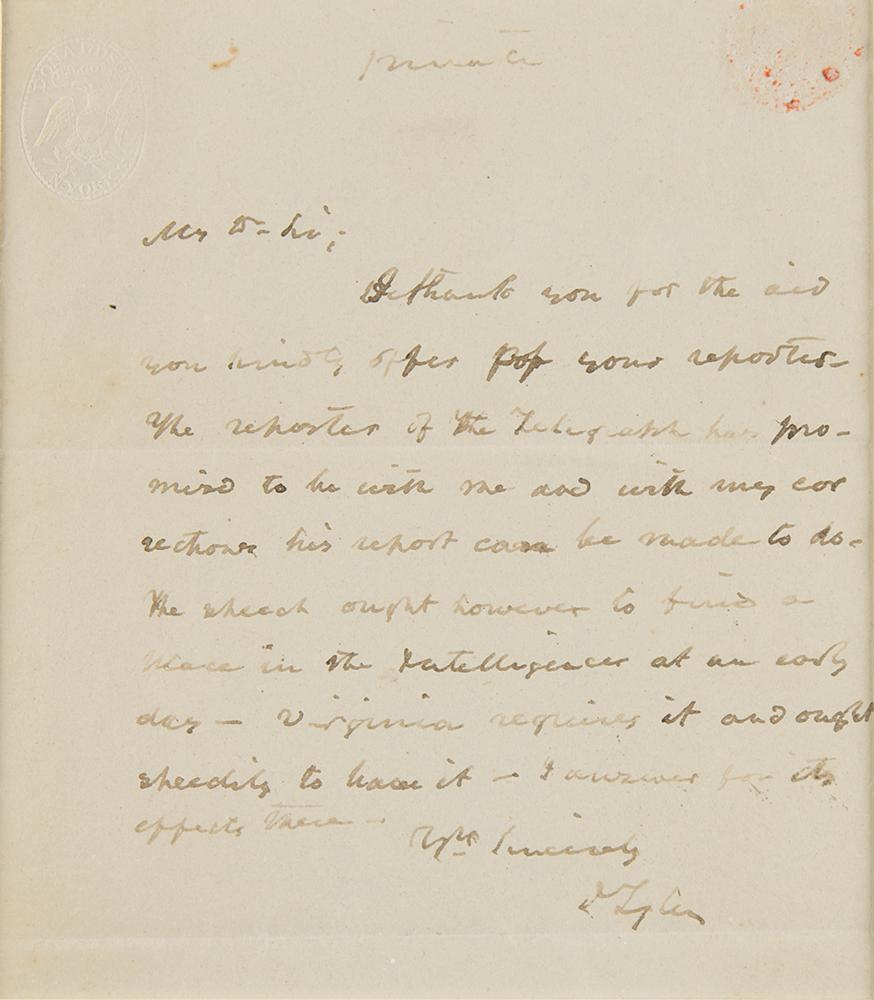 private
My Dr Sir;
I thank you for the aid
you kindly offer of your reporter—
The reporter of the Telegraph has pro-
misd to be with me and with my cor
rections his report can be made to do—
The speech ought however to find a
place in the Intelligencer at an early
day — Virginia requires it and ought
speedily to have it — I answer for its
effects there —
Yrs Sincerely
J Tyler
N-YORK